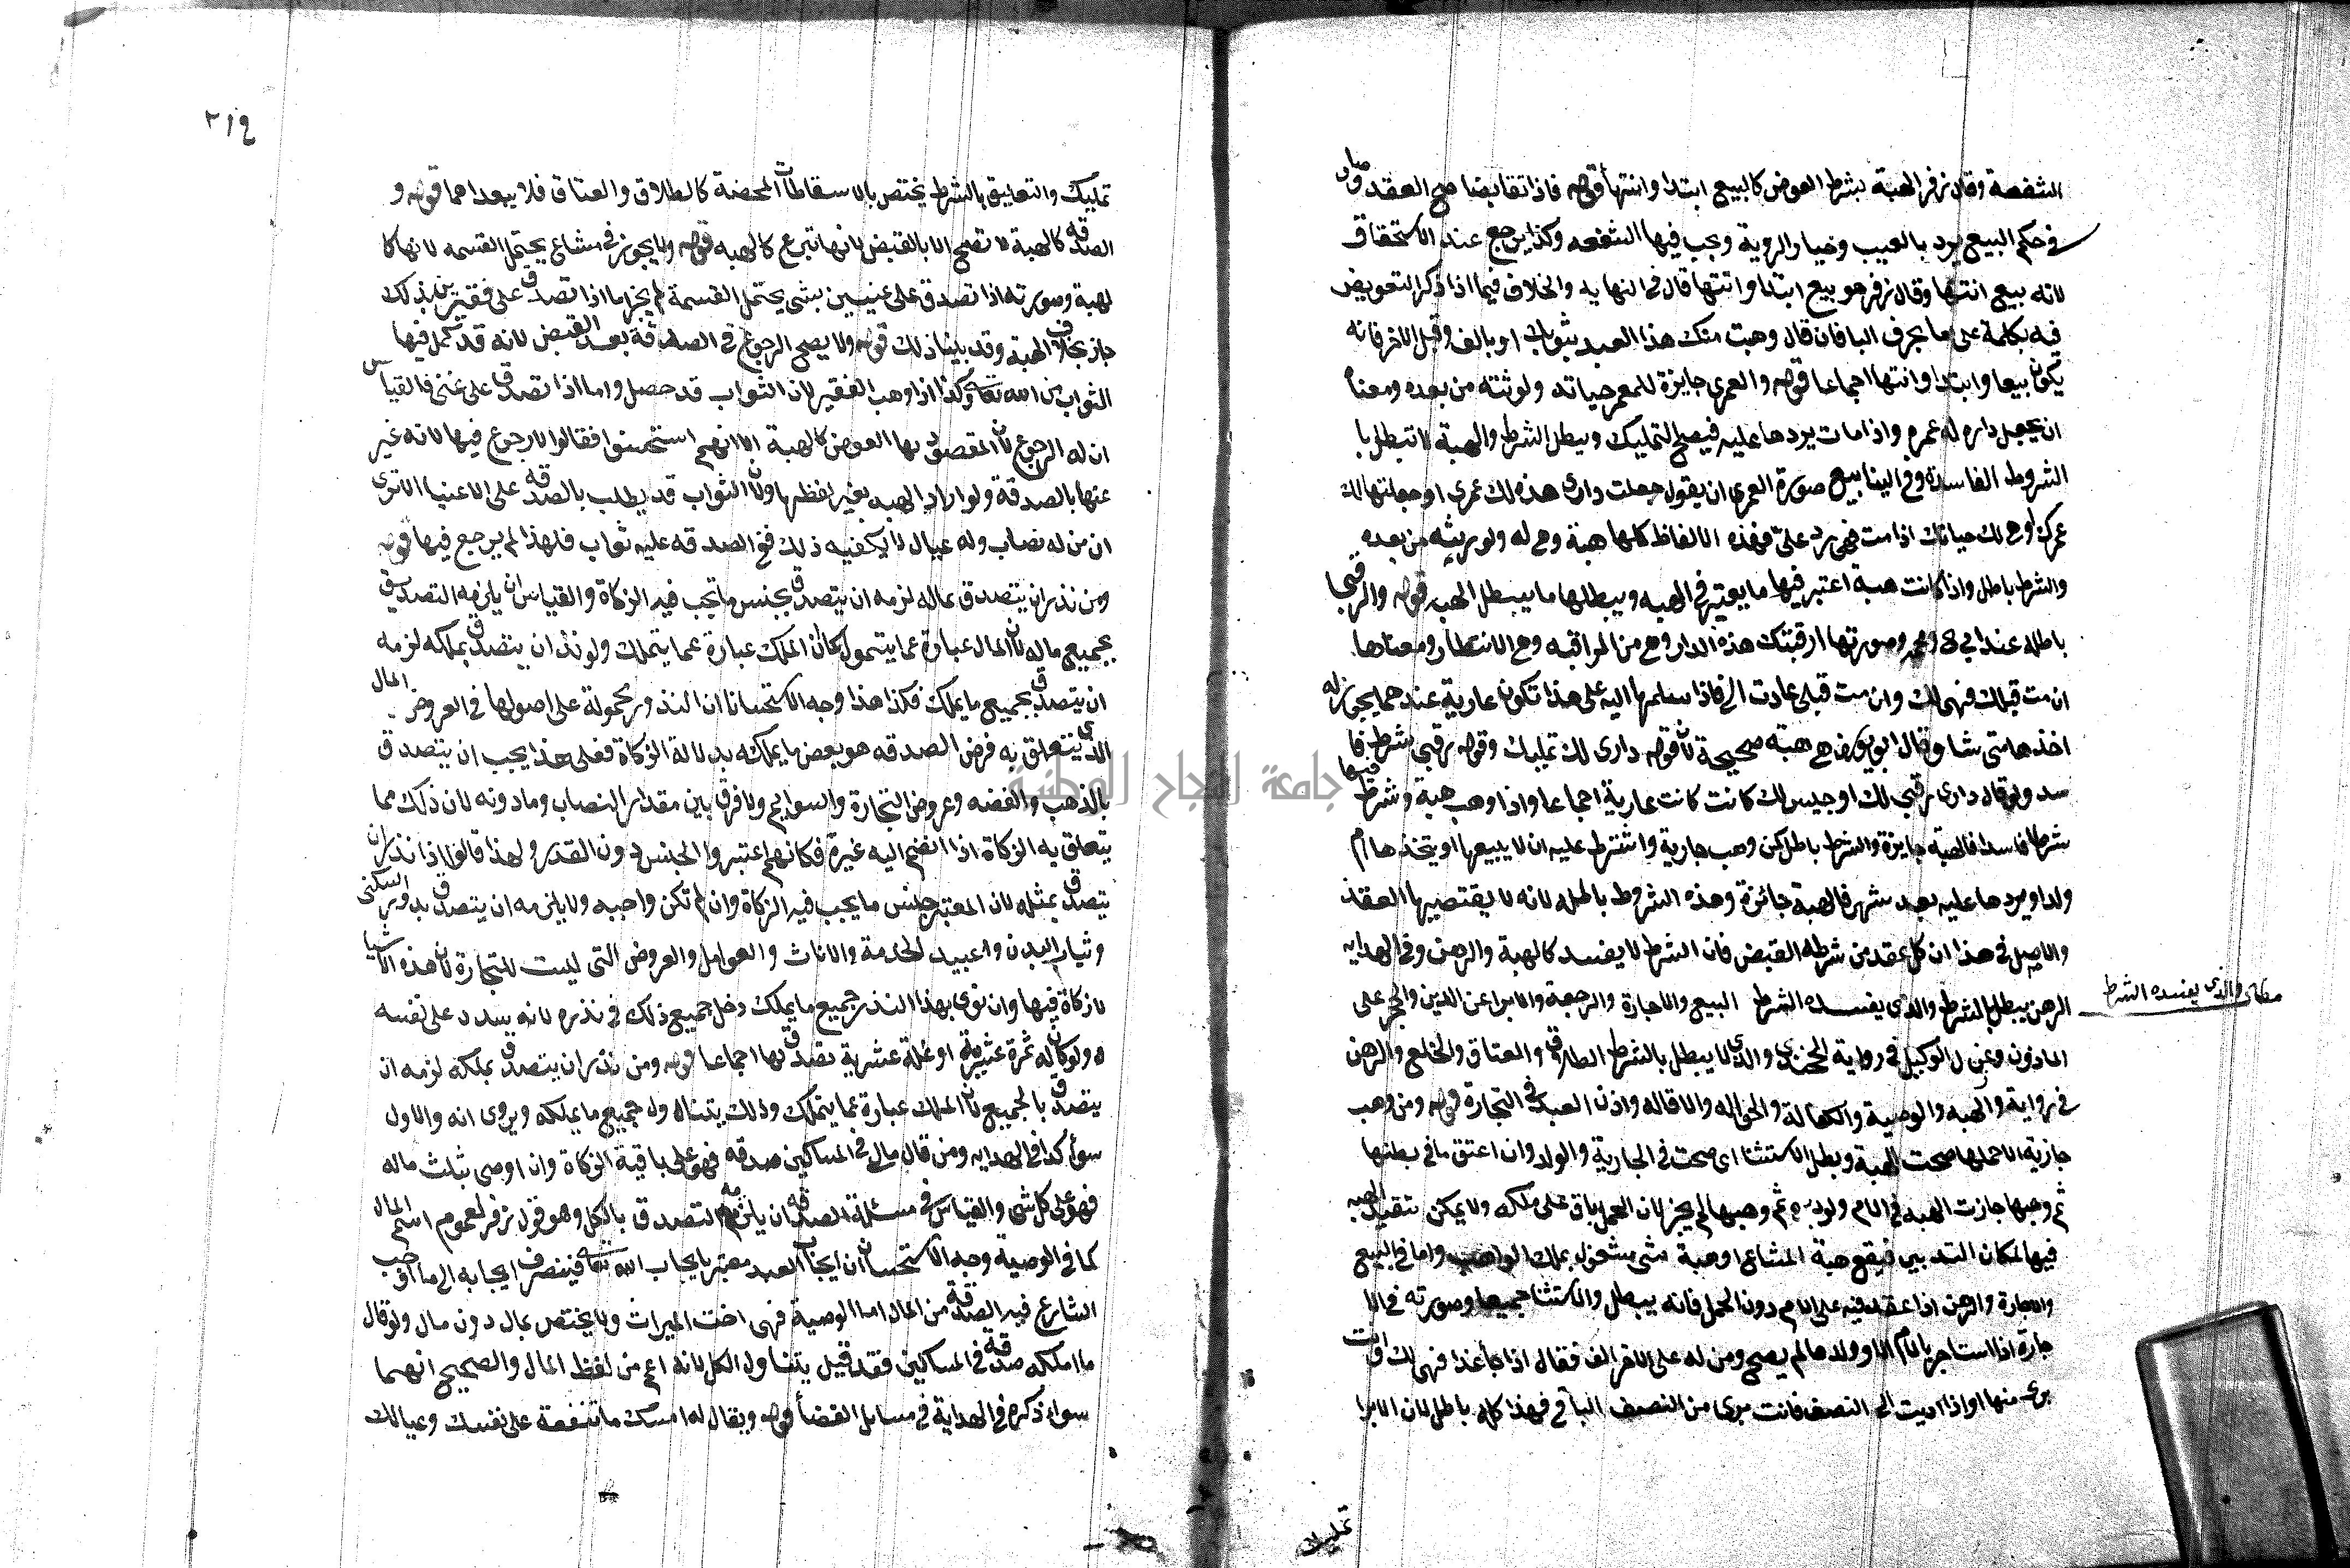 الشفعة وقال زفر الهبة بشرط العوض كالبيع ابتدا وانتها قوله فاذا تقابضا صح العقد وصار
في حكم البيع يرد بالعيب وخيار الروية وتجب فيها الشفعه وكذا يرجع عند الاستحقاق
لانه بيع انتها وقال زفر هو بيع ابتدا وانتها قال في النهايه والخلاف فيما اذا ذكر التعويض
فيه بكلمة على اما بحرف البا فان قال وهبت منك هذا العبد بثوبك او بالف وقبل الاخر فانه
يكون بيعا وابتدا وانتها اجماعا قوله والعمرى جايزة للمعمر حياته ولورثته من بعده ومعناه
ان يجعل داره له عمره واذا مات يردها عليه فيصح التمليك ويبطل الشرط والهبة لا تبطل با
الشروط الفاسدة وفي الينابيع صورة العمرى ان يقول جعلت دارى هذه لك عمرى او جعلتها لك
عمرك او هي لك حياتك اذا مت فهي رد علي فهذه الالفاظ كلها هبة وهي له ولورثته من بعده
والشرط باطل واذا كانت هبة اعتبر فيها ما يعتبر في الهبه ويبطلها ما يبطل الهبه قوله والرقبى
باطله عند ابي ح ومحمد وصورتها ارقبتك هذه الدار وهي من المراقبه وهي الانتظار ومعناها
ان مت قبلك فهي لك وان مت قبلى عادت الي فاذا سلمها اليه على هذا تكون عارية عندهما يجوز له
اخذها متى شا وقال ابو يوسف هي هبة صحيحة لان قوله دارى لك تمليك وقوله رقبى شرط فا
سد ولو قال دارى رقبى لك او حبيس لك كانت عارية اجماعا واذا وهب هبة وشرط فيها
شرطا فاسدا فالهبة جايزة والشرط باطل كمن وهب جارية واشترط عليه ان لا يبيعها او يتخذها ام
ولد او يردها عليه بعد شهر فالهبة جائزة وهذه الشروط باطله لانه لا يقتضيها العقد
والاصل في هذا ان كل عقد من شرطه القبض فان الشرط لا يفسده كالهبة والرهن وفي الهدايه
الرهن يبطل بالشرط والذى يفسده الشرط البيع والاجارة والرجعة والابرا عن الدين والحجر على
مطلب والذى يفسده الشرط
الماذون وعزل الوكيل في رواية الخجندي والذي لا يبطل بالشرط الطلاق والعتاق والخلع والرهن
في رواية والهبه والوصية والكفالة والحواله والاقاله واذن العبد في التجارة قوله ومن وهب
جارية الا حملها صحت الهبة وبطل الاستثنا اى صحت في الجارية والولد وان اعتق ما في بطنها
ثم وهبها جازت الهبه في الام ولو دبره ثم وهبها لم يجز لان الحمل باق على ملكه ولا يمكن تنفيذ الهبه
فيها لمكان التدبير فيقع هبة المشاع او هبة شى مشغول بملك الواهب واما في البيع
والاجارة والرهن اذا عقد فيه على الام دون الحمل فانه يبطل والاستثنا جميعا وصورته في الا
جارة اذا استاجر بالام الا ولدها لم يصح ومن له على اخر الف فقال اذا جا غدا فهي لك او انت
برى منها او اذا اديت الى النصف فانت برى من النصف الباقي فهذا كله باطل لان الابرا
تمليك
٢١٩
تمليك والتعليق بالشرط يختص بالاسقاطات المحضة كالطلاق والعتاق فلا يبعداهما قوله و
الصدقه كالهبة لا تصح الا بالقبض لانها تبرع كالهبه قوله ولا يجوز في مشاع يحتمل القسمه لانها كا
لهبة وصورته اذا تصدق على غنيين بشى يحتمل القسمة لم يجز اما اذا تصدق على فقيرين بذلك
جاز بخلاف الهبة وقد بينا ذلك قوله ولا يصح الرجوع في الصدقة بعد القبض لانه قد كمل فيها
الثواب من الله تعالى وكذا اذا وهب الفقير لان الثواب قد حصل واما اذا تصدق على غنى فالقياس
ان له الرجوع لان المقصود بها العوض كالهبة الا انهم استحسنوا فقالوا لا رجوع فيها لانه عبر
عنها بالصدقة ولو اراد الهبه لعبر بلفظها ولان الثواب قد يطلب بالصدقه على الاغنيا الا ترى
ان من له نصاب وله عيال لا يكفيه ذلك ففي الصدقه عليه ثواب فلهذا لم يرجع فيها قوله
ومن نذر ان يتصدق بماله لزمه ان يتصدق بجنس ما يجب فيه الزكاة والقياس ان يلزمه التصديق
بجميع ماله لان المال عبارة عما يتمول كما ان الملك عبارة عما يتملك ولو نذر ان يتصدق بملكه لزمه
ان يتصدق بجميع ما يملك فكذا هذا وجه الاستحسان ان النذور محمولة على اصولها في الفروض المال
الذي يتعلق به فرض الصدقه هو بعض ما يملكه بدلالة الزكاة فعلى هذا يجب ان يتصدق
بالذهب والفضه وعروض التجارة والسوايم ولا فرق بين مقدار النصاب وما دونه لان ذلك مما
يتعلق به الزكاة اذا انضم اليه غيره فكانهم اعتبروا الجنس دون القدر ولهذا قالوا اذا نذر ان
يتصدق بمثله لان المعتبر جنس ما يجب فيه الزكاة وان لم تكن واجبه ولا يلزمه ان يتصدق بدور السكنى
وثياب البدن وعبيد الخدمة والاثاث والعوامل والعروض التى ليست للتجارة لان هذه الاشيا
لا زكاة فيها وان نوى بهذا النذر جميع ما يملك دخل جميع ذلك في نذره لانه شدد على نفسه
ولو كان له ثمرة عشرية او غلة عشرية تصدق بها اجماعا قوله ومن نذر ان يتصدق بملكه لزمه ان
يتصدق بالجميع لان الملك عبارة عما يتملك وذلك يتناول جميع ما يملكه ويروى انه والاول
سوا كذا في الهدايه ومن قال مالى في المساكين صدقه فهو على ما فيه الزكاة وان اوصى بثلث ماله
فهو على كل شى والقياس في مسئلة الصدقه ان يلزمه التصدق بالكل وهو قول زفر لعموم اسم المال
كما في الوصية وجه الاستحسان ان ايجاب العبد معتبر بايجاب الله تعالى فينصرف ايجابه الى ما اوجب
الشارع فيه الصدقة من المال اما الوصية فهى اخت الميراث ولا يختص بمال دون مال ولو قال
ما املكه صدقة في المساكين فقد قيل يتناول الكل لانه اعم من لفظ المال والصحيح انهما
سواء ذكره في الهداية في مسايل القضا قوله ويقال له امسك ما تنفقه على نفسك وعيالك
جامعة النجاح الوطنية